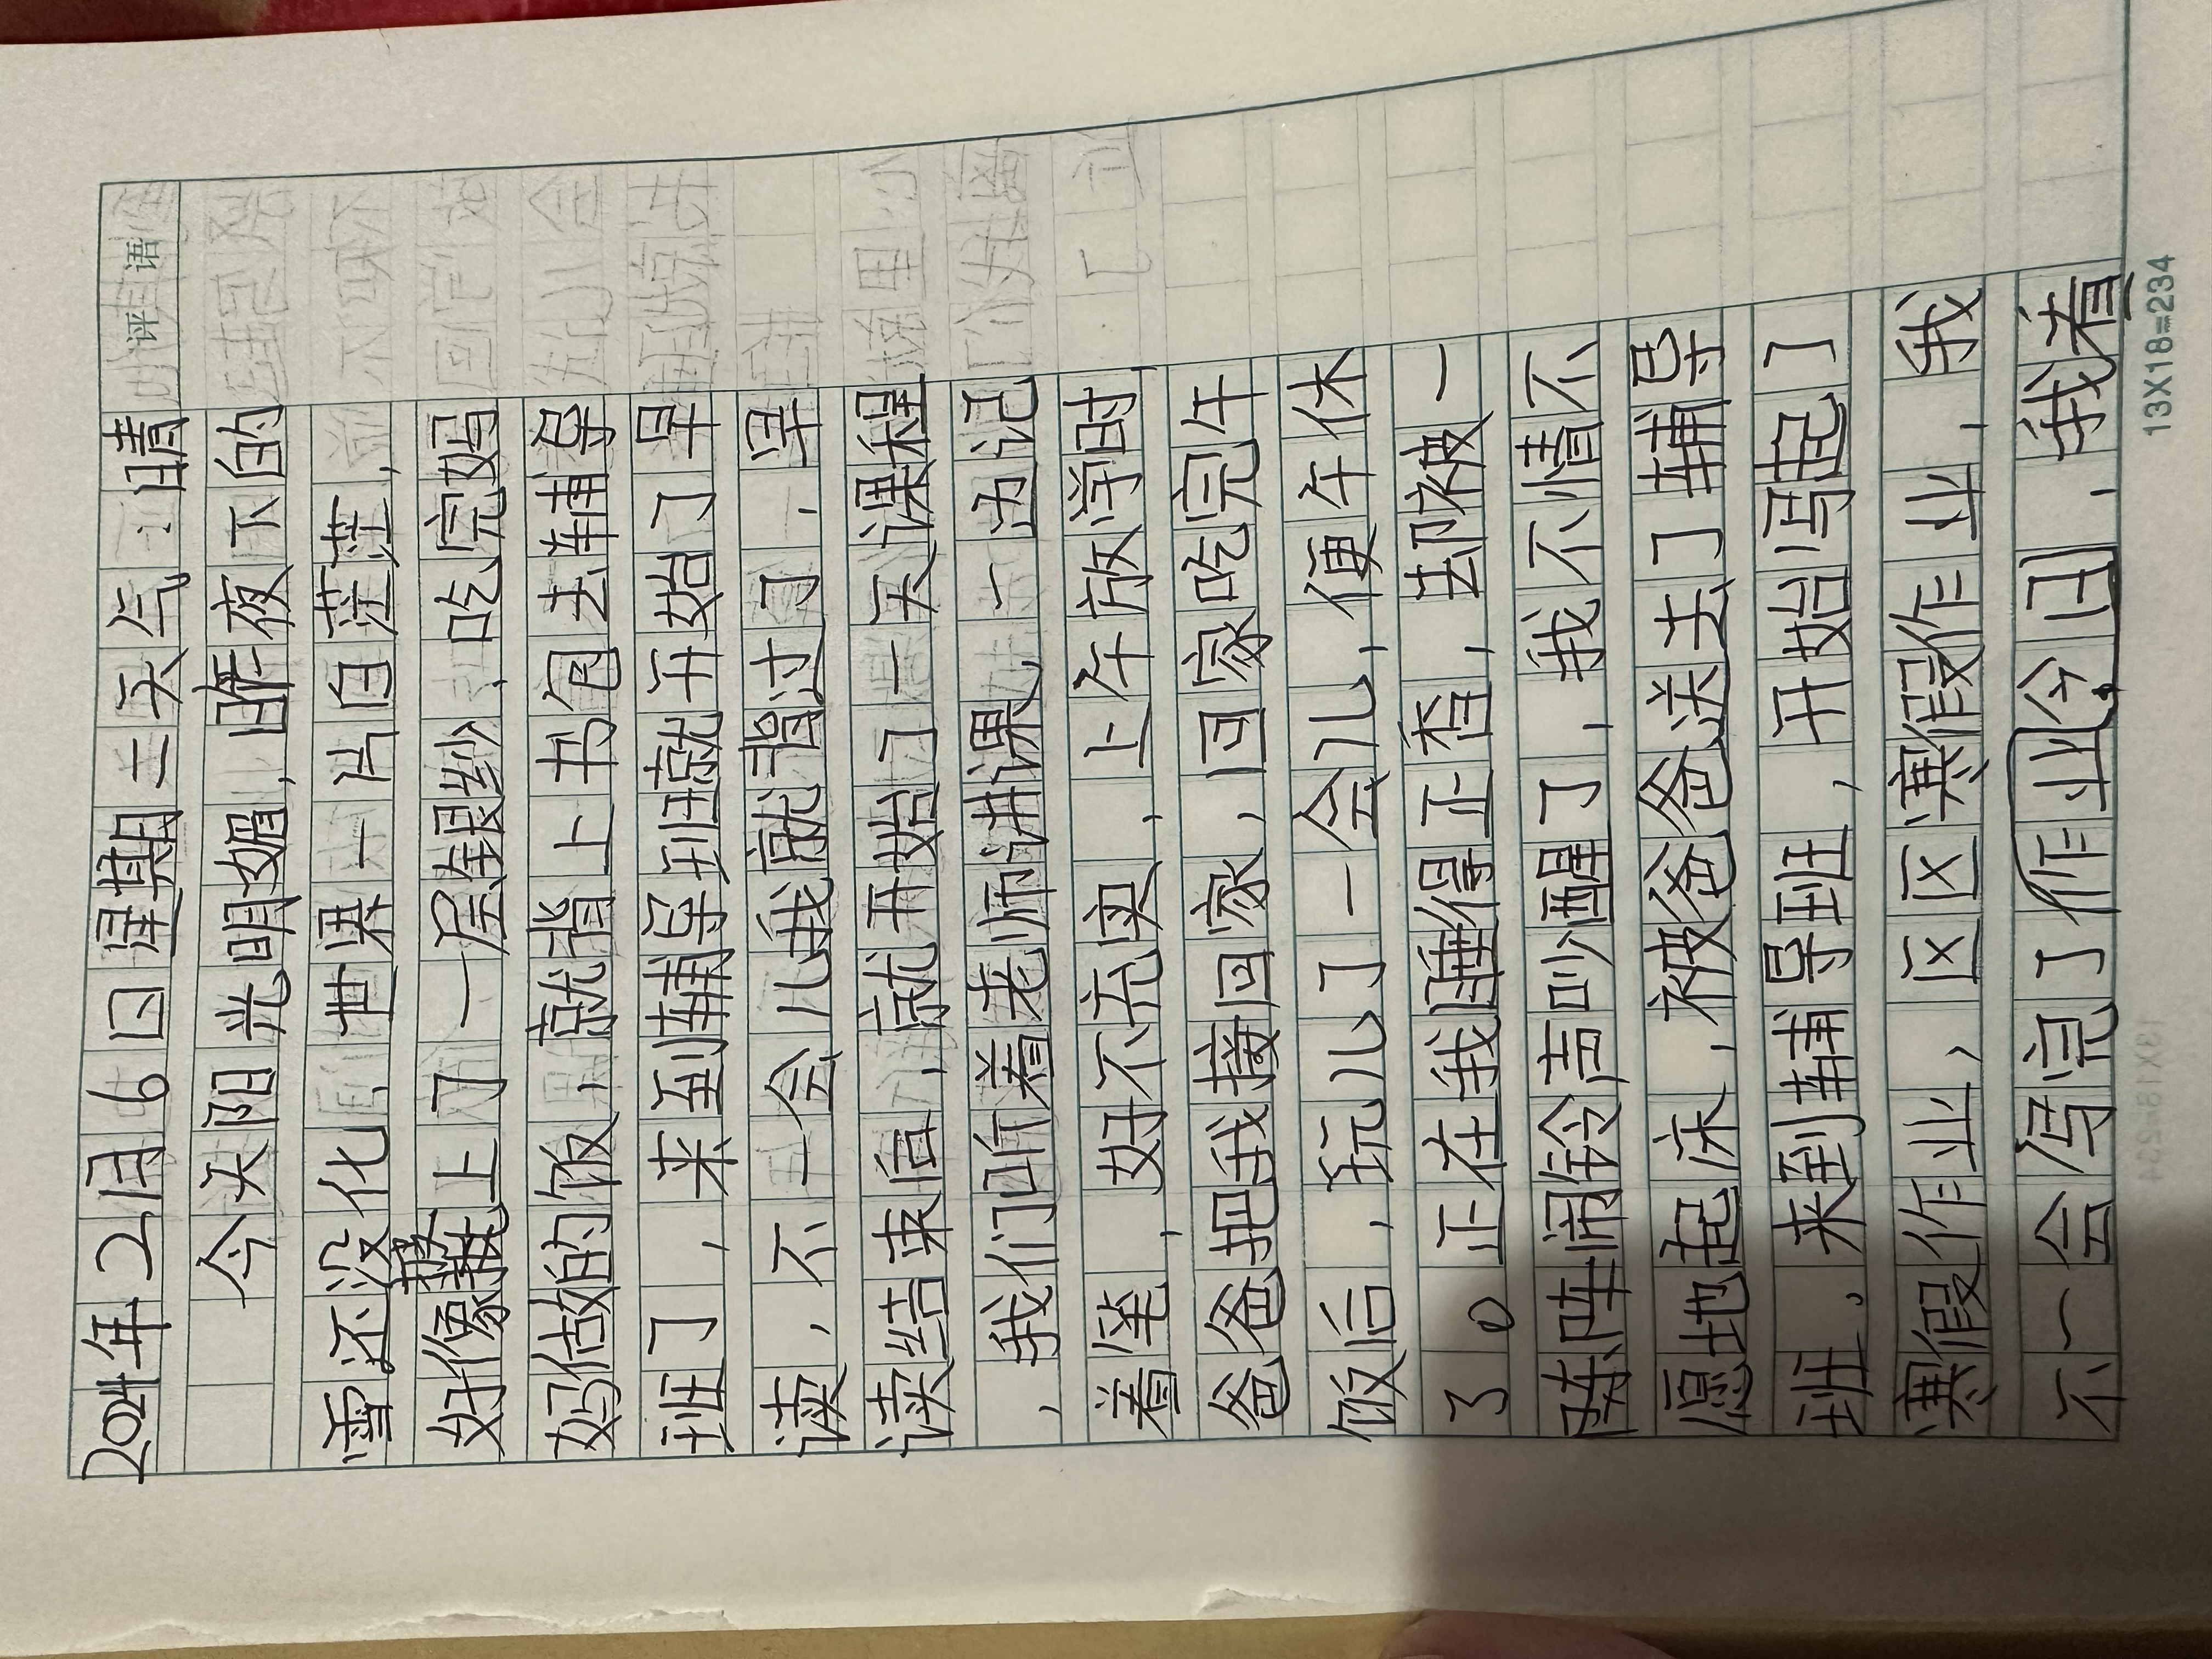 2024年2月6日星期二天气:晴
评语
今天阳光明媚,昨夜下的
雪还没化,世界一片白茫茫,
好像披上了一层银纱,吃完妈
妈做的饭,就背上书包去辅导
班了,来到辅导班就开始了早
读,不一会儿我就背过了,早
读结束后,就开始了一天课程
,我们听着老师讲课,一边记
着笔,好不充实,上午放学时
爸爸把我接回家,回家吃完午
饭后,玩儿了一会儿,便午休
了。正在我睡得正香,却被一
阵闹铃声吵醒了,我不情不
愿地起床,被爸爸送去了辅导
班,来到辅导班,开始写起了
寒假作业,区区寒假作业,我
不一会写完了作业今日,我着
13X18=234